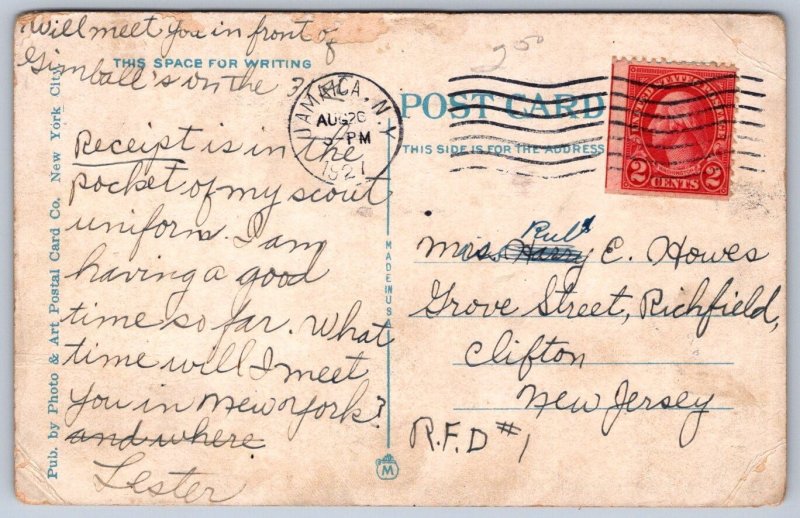 Will meet you in front of
Gimball's on the 31
THIS SPACE FOR WRITING
Receipt is in the
pocket of my scout
uniform. I am
having a good
time so far. What
time will I meet
you in New York?
and where
Lester
Pub. by Photo & Art Postal Card Co. New York City
MADE IN USA
M
200
JAMAICA, N.Y.
AUG 26
PM
1921
POST CARD
THIS SIDE IS FOR THE ADDRESS
UNITED STATES POSTAGE
2 CENTS 2
Ruby
Miss Harry E. Howes
Grove Street, Richfield,
Clifton
New Jersey
R.F.D #1